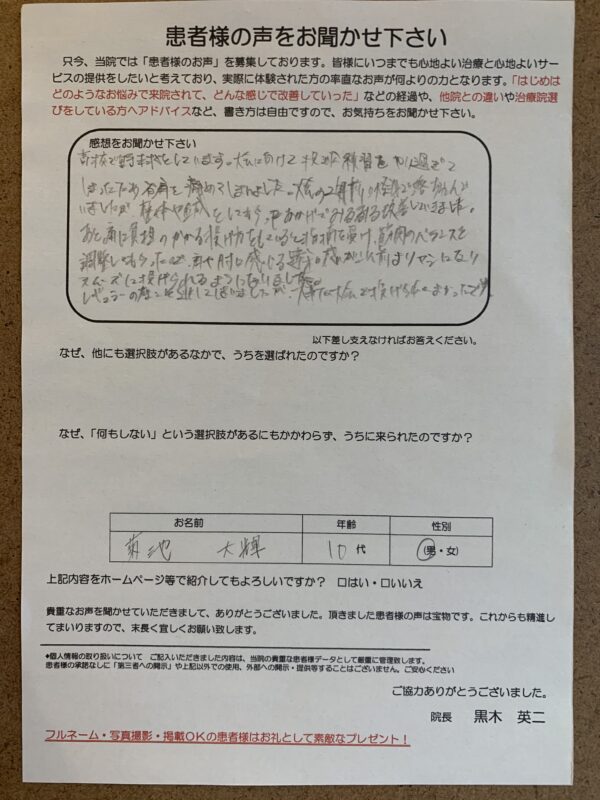 患者様の声をお聞かせ下さい
只今、当院では「患者様のお声」を募集しております。皆様にいつまでも心地よい治療と心地よいサー
ビスの提供をしたいと考えており、実際に体験された方の率直なお声が何よりの力となります。「はじめは
どのようなお悩みで来院されて、どんな感じで改善していった」などの経過や、他院との違いや治療院選
びをしている方へアドバイスなど、書き方は自由ですので、お気持ちをお聞かせ下さい。
感想をお聞かせ下さい
高校で野球をしています。大会に向けて投球練習をやり過ぎて
しまったため右肩を痛めてしまいました。大会の2週間
いましたが整体や をしてもらう中 改善していきました。
あと肩に負担のかかる投げ方をしていると指摘を受け、筋肉のバランスを
調整してもらったので、肩や肘に感じる
スムーズに投げられるようになりました。
レギュラーの 大会で投げられてよかったです。
以下差し支えなければお答えください。
なぜ、他にも選択肢があるなかで、うちを選ばれたのですか?
なぜ、「何もしない」という選択肢があるにもかかわらず、うちに来られたのですか?
お名前 年齢 性別
菊池 大輝 10代 (男・女)
上記内容をホームページ等で紹介してもよろしいですか? □はい・□いいえ
貴重なお声を聞かせていただきまして、ありがとうございました。頂きました患者様の声は宝物です。これからも精進し
てまいりますので、末長く宜しくお願い致します。
◆個人情報の取り扱いについて ご記入いただきました内容は、当院の貴重な患者様データとして厳重に管理致します。
患者様の承諾なしに「第三者への開示」や上記以外での使用、外部への開示・提供等することはございません。ご安心ください
ご協力ありがとうございました。
院長 黒木 英二
フルネーム・写真撮影・掲載OKの患者様はお礼として素敵なプレゼント!